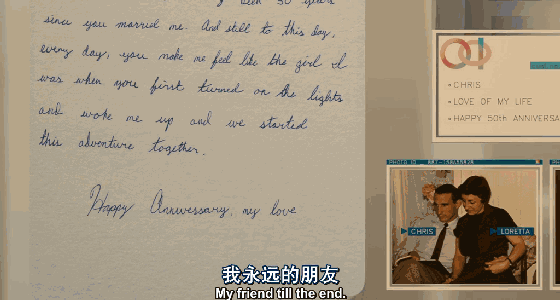 been 50 years
since you married me. And still to this day,
every day, you make me feel like the girl I
was when you first turned on the lights
and woke me up and we started
this adventure together.
Happy Anniversary, my love
• CHRIS
• LOVE OF MY LIFE
• HAPPY 50th ANNIVERSA
CHRIS
LORETTA
我永远的朋友
My friend till the end.